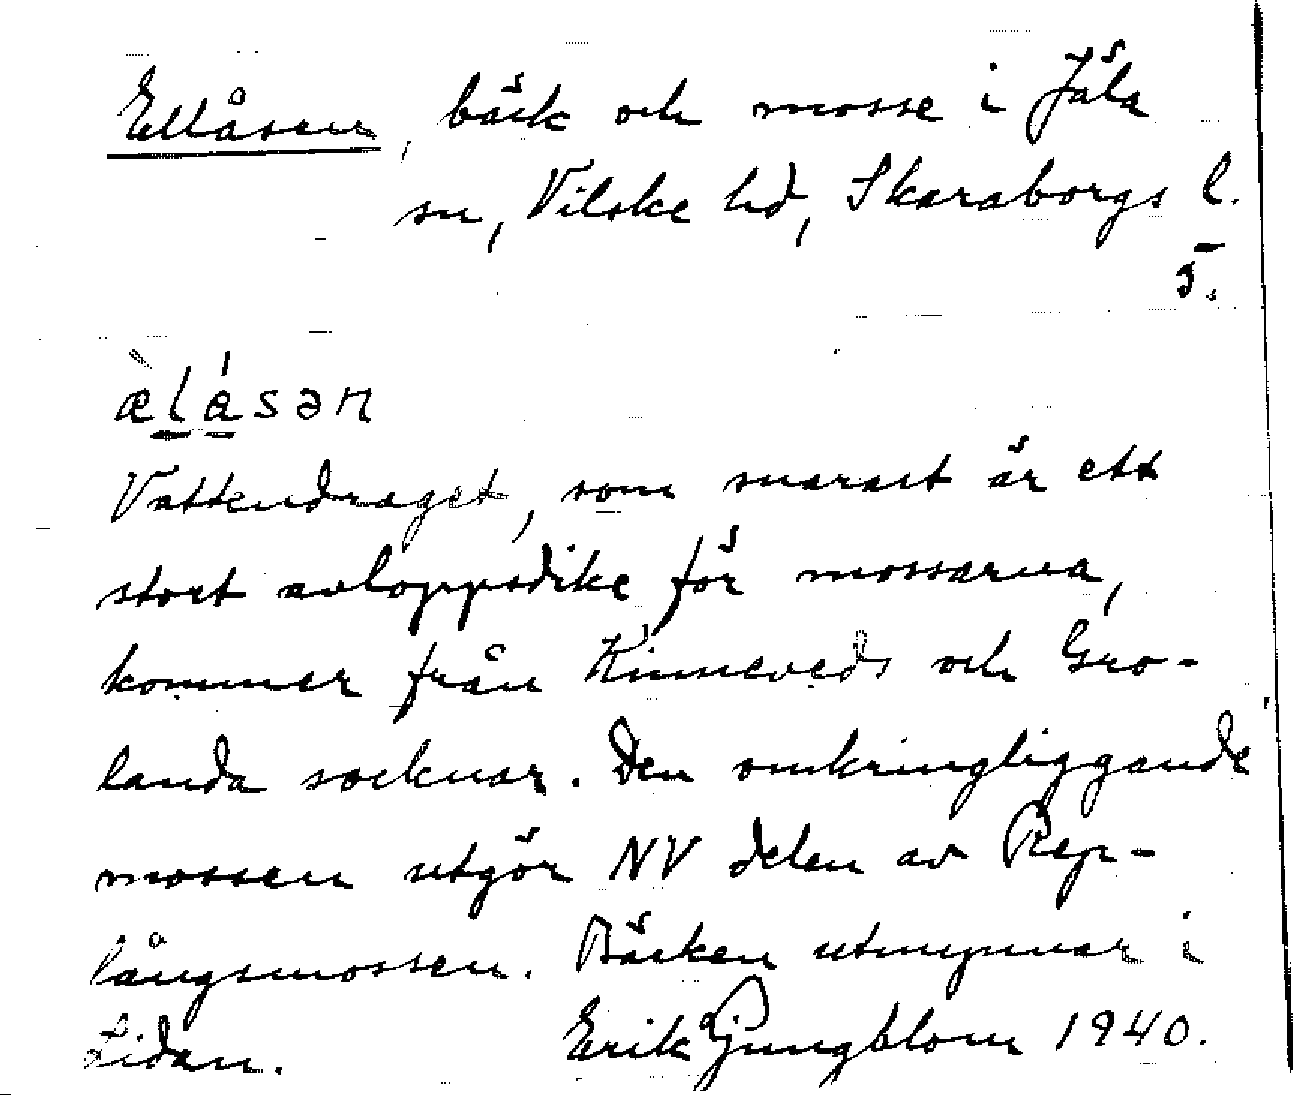 Ellåsen, bäck och mosse i Jäla
sn, Vilske hd, Skaraborgs l.
5.
æ̀lásər
Vattendraget, som snarast är ett
stort avloppsdike för mossarna,
kommer från Kinneveds och Gro-
landa socknar. Den omkringliggande
mossen utgör NV delen av Rep-
långsmossen. Bäcken utmynnar i
Lidan. Erik Ljungblom 1940.